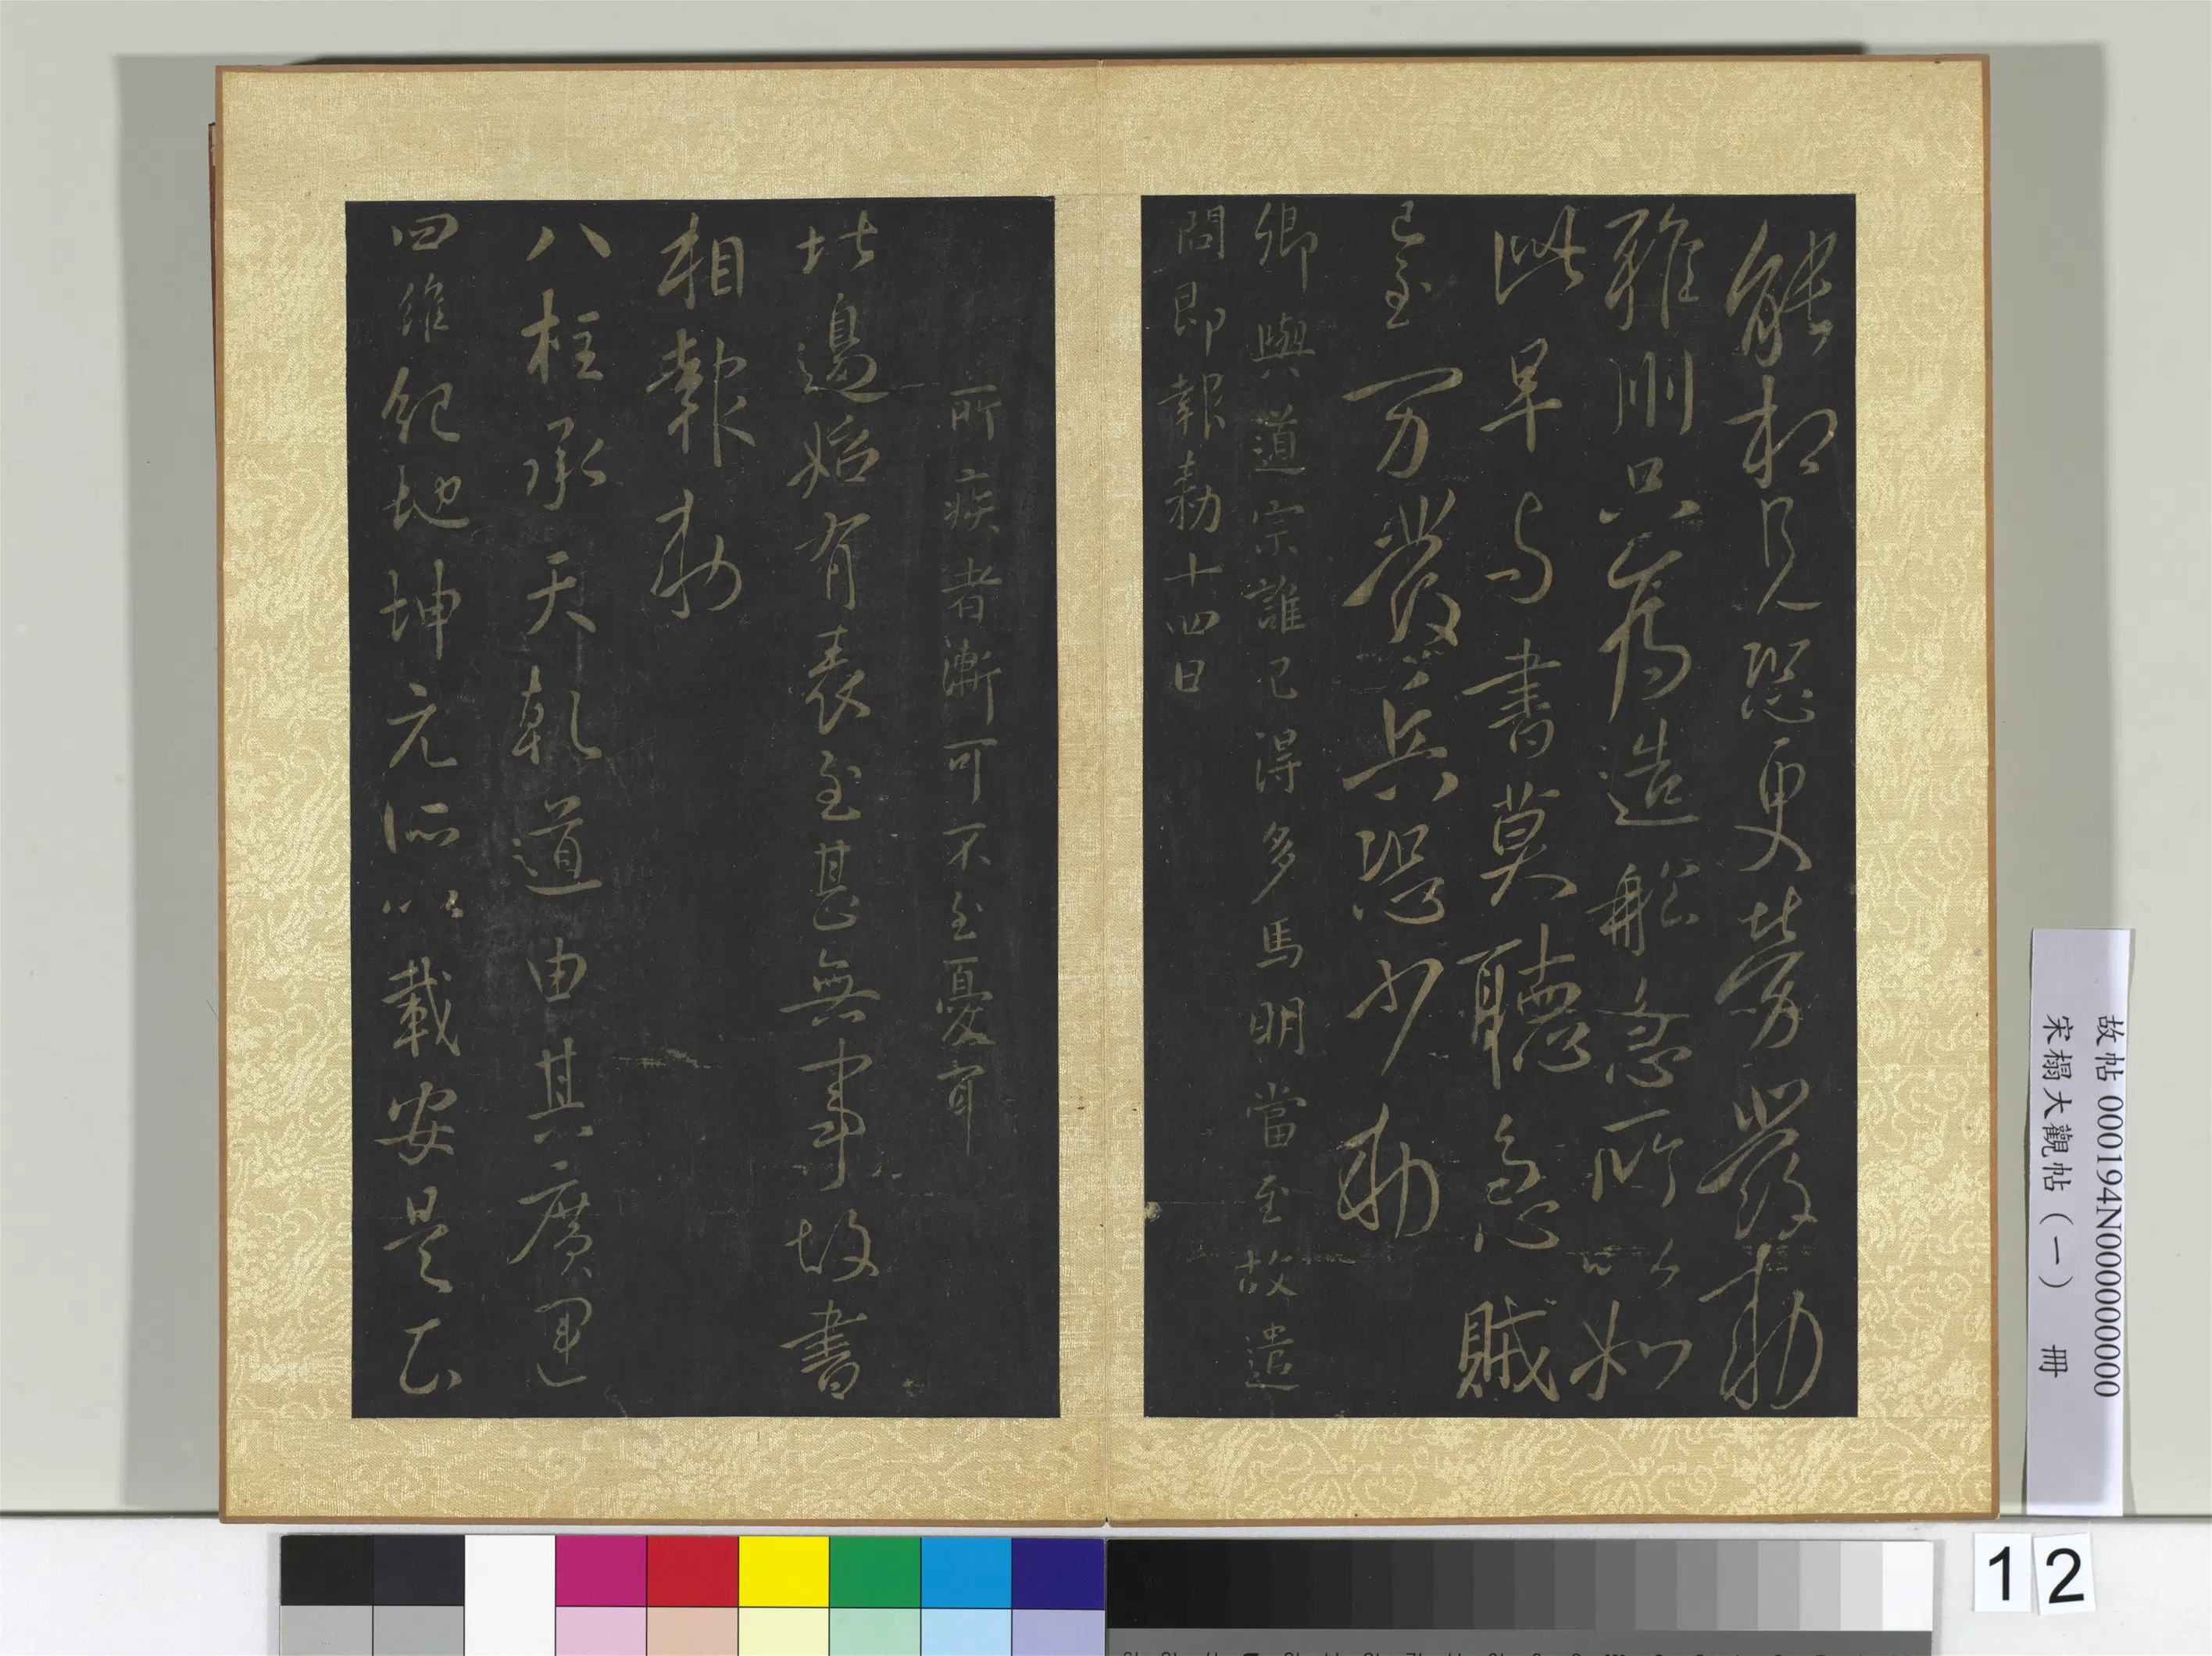 能相見恐更此勞發勅
雅州只爲造船急所以如
此早与書莫聽急賊
已至万發兵恐少勅
卿與道宗誰已得多馬明當至故遣
問即報勅十四日
所疾者漸可不至憂耳
此邊始有表至甚無事故書
相報勅
八柱承天乾道由其廣運
四維紀地坤元所以載安是
故帖 000194N000000000
宋榻大觀帖（一） 冊
12